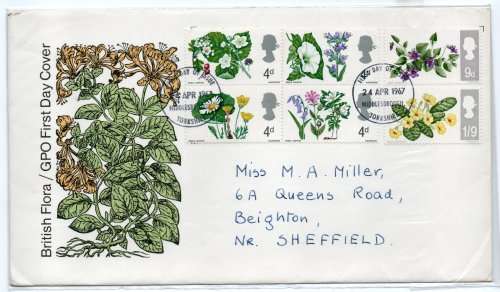 British Flora / GPO First Day Cover
4d
4d
9d
4d
4d
1/9
FIRST DAY OF ISSUE
24 APR 1967
MIDDLESBROUGH
YORKSHIRE
FIRST DAY OF ISSUE
24 APR 1967
MIDDLESBROUGH
YORKSHIRE
Miss M. A. Miller,
6A Queens Road,
Beighton,
Nr. SHEFFIELD.